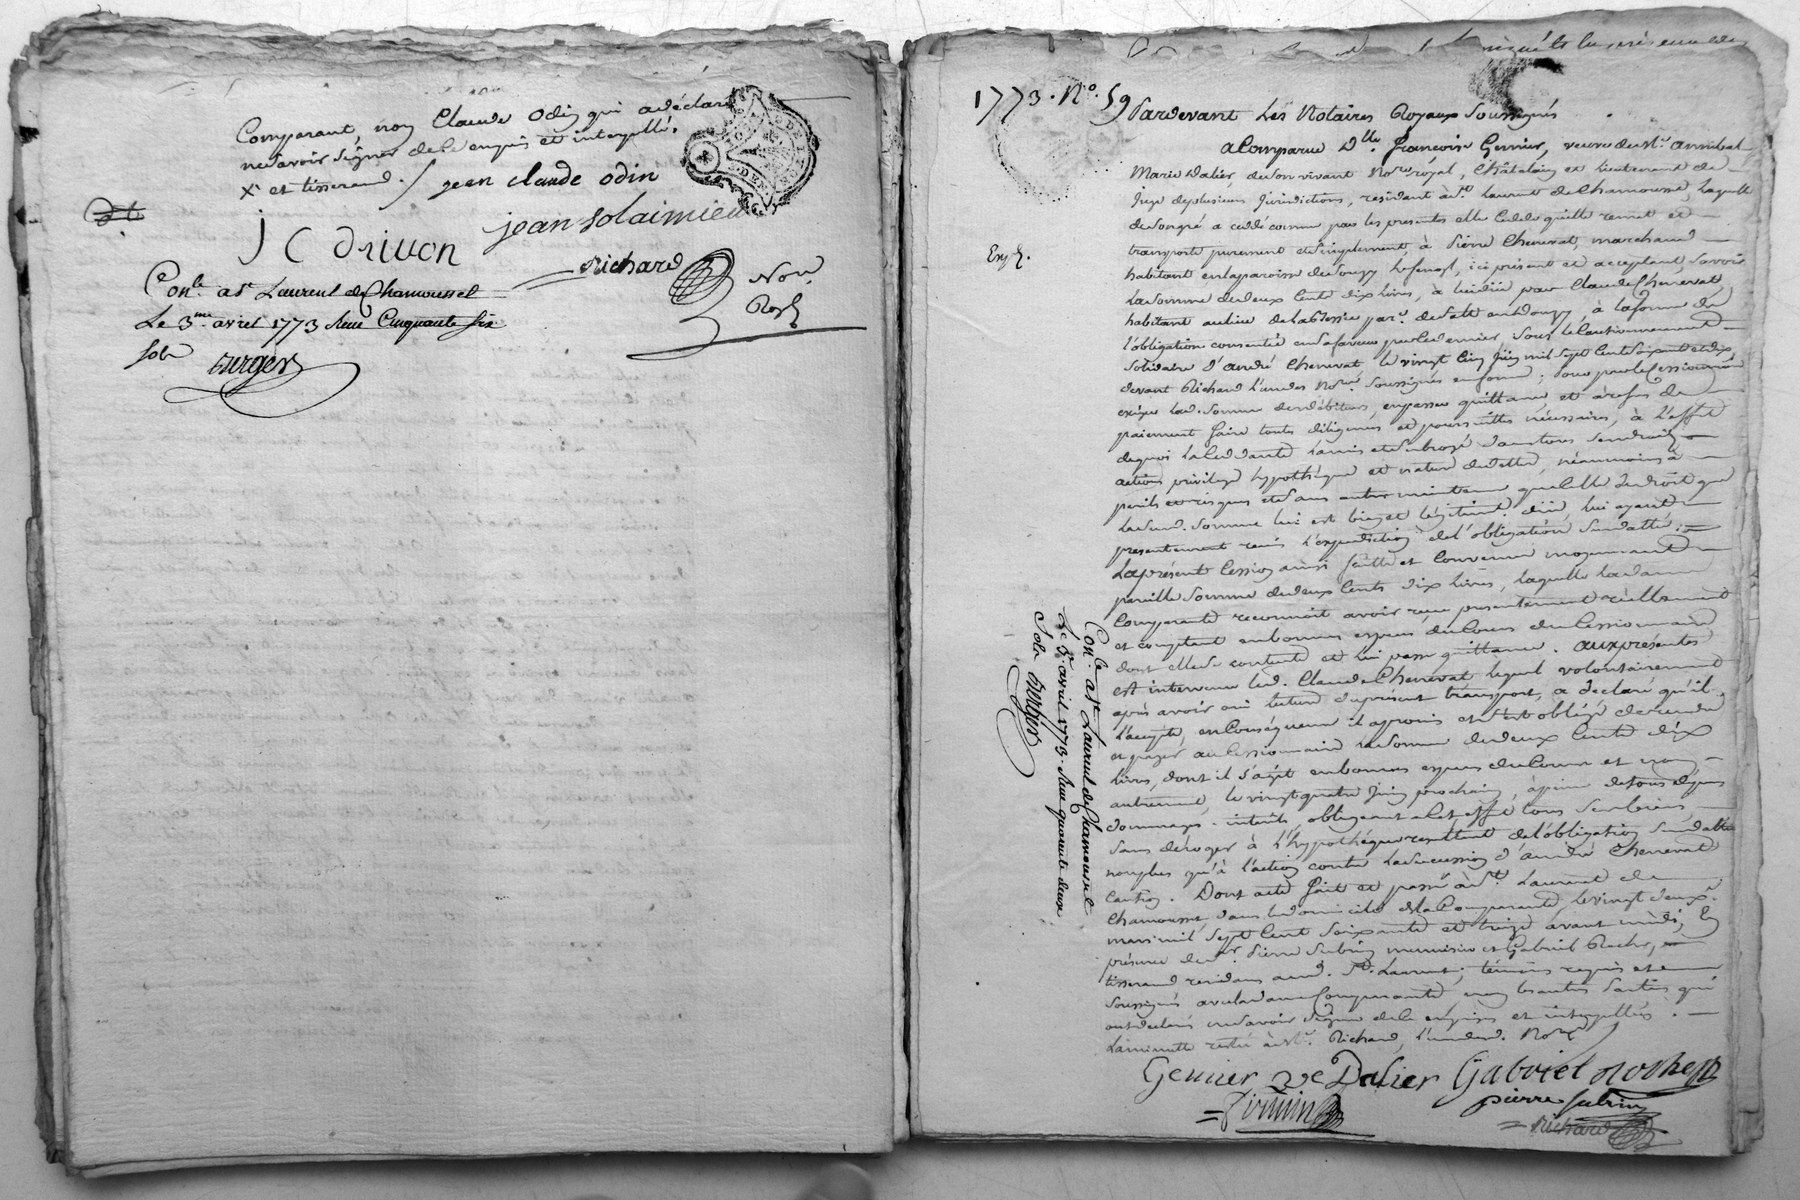 Comparant, non Claude Odin qui a déclaré
ne savoir signer de ce enquis et interpellé.
X. et tisserand. / jean claude odin
jean solaimieu
J C Drivon
Richard
Not.re
Roy.l
Con.lé a S.t Laurent de Chamousset
Le 3.me avril 1773 Reçu Cinquante six
sols
Burger
1773. N.o 59
Pardevant Les Notaires Royaux Soussignés
a Comparue D.lle Françoise Genier, veuve de M.e annibal
Marie Dalier, de son vivant No.re royal, Châtelain et Lieutenant de
Juge de plusieurs Jurisdictions, residant à S.t Laurent de Chamousset, laquelle
de son gré a cedé comme par les presentes elle Cede quitte remet et
transporte purement et simplement, à Pierre Chenevat, marchand
Exp.é
habitant en la paroisse de Souzy, ici present et acceptant, Savoir
La Somme de deux Cents dix livres, à lui düe par Claude Chenevat,
habitant au lieu de par.e dud.
l'obligation consentie en sa faveur par le dernier sous le Cautionnement
Solidaire d'andré Chenevat le vingt Cinq Juin mil Sept Cent Soixante et dix
devant Richard l'un des No.res Soussignés en forme; Pour par le Cessionnaire
exiger lad. Somme des débiteurs, en passer quittance, et à refus de
paiement faire toutes diligences et poursuittes nécessaires, à l'effet
de quoi la Cedante l'a mis et subrogé dans tous ses droits
actions privilege hypothèque et nature de dette, néanmoins à
perils et risques et sans autre maintenue que celle du droit que
La Susd. Somme lui est bien et légitimement düe, lui ayant
presentement remis l'expedition de l'obligation Susdatée.
La présente Cession ainsi faitte et Convenue moyennant
pareille Somme de deux Cents dix livres, laquelle la dame
Comparante reconnoit avoir reçu presentement réellement
et comptant en bonnes especes du Cours du Cessionnaire
dont elle se contente et lui passe quittance. aux présentes
Est intervenu led. Claude Chenevat lequel volontairement
après avoir oui lecture du présent transport, a declaré qu'il
l'accepte, en Conséquence il a promis et s'est obligé de rendre
et payer au Cessionnaire La Somme de deux Cents dix
livres, dont il s'agit en bonnes especes du Cours et non
autrement, le vingt quatre Juin prochain, à peine de tous dépens
dommages-interêts, obligeant à cet effet tous ses biens,
Sans déroger à l'hypothèque resultant de l'obligation Susdattée
non plus qu'à l'action contre la Succession d'andré Chenevat
Caution. Dont acte fait et passé à S.t Laurent de
Chamousset dans le domicile de la Comparante, le vingt deux
mars mil Sept Cent Soixante et treize avant midi, En
présence de S.r Pierre Subrin menuisier et Gabriel Rocher,
tisserand residans aud. S.t Laurent, témoins requis et
Soussignés avec la dame Comparante, non les autres Parties qui
ont declaré ne savoir Signer de ce enquises et interpellées.
La minutte restée à M.e Richard, l'un desd. No.res
Con.lé a S.t Laurent de Chamousset
Le 3.e avril 1773. Reçu quarante deux
Sols Burger
Genier v.e Dalier Gabriel rocher
pierre subrin
Richard